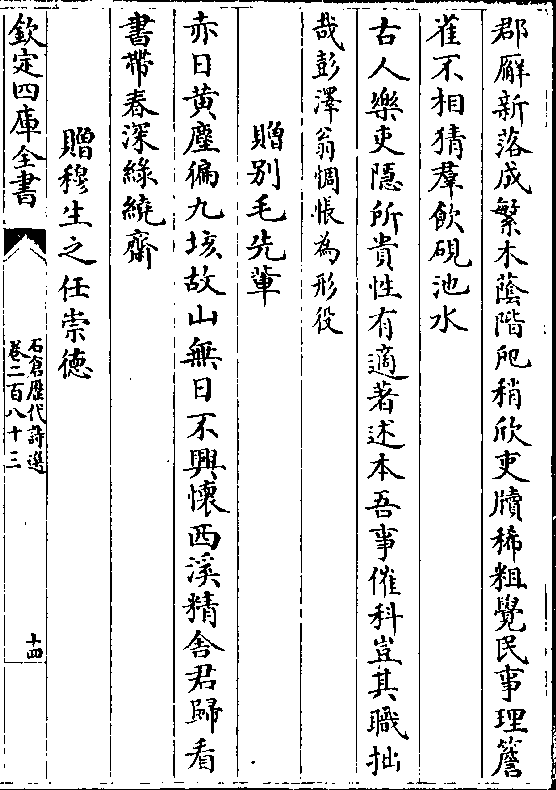 郡廨新落成繁木蔭階戺稍欣吏牘稀粗覺民事理簷
雀不相猜羣飲硯池水
古人樂吏隱所貴性有適著述本吾事催科豈其職拙
哉彭澤翁惆悵為形役
贈别毛先輩
赤日黄塵徧九垓故山無日不興懷西溪精舍君歸看
書帶春深綠繞齋
贈穆生之任崇徳
欽定四庫全書
石倉歴代詩選
卷二百八十三
十四